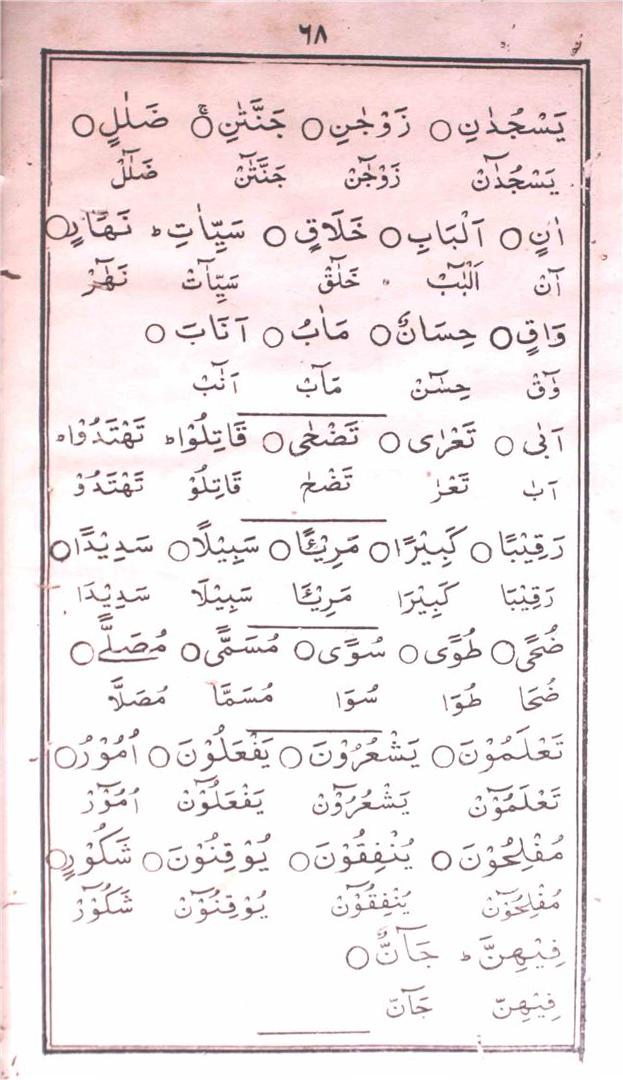 ٦٨
يَسْجُدٰنِ ○ زَوْجٰنِ ○ جَنَّتٰنِ ○ ضَلٰلٍ ○
يَسْجُدٰنْ زَوْجٰنْ جَنَّتٰنْ ضَلٰلْ
اٰنٍ ○ اَلْبَابِ ○ خَلَاقٍ ○ سَيِّاٰتِ ط نَهَارٍ ○
اٰنْ اَلْبٰبْ خَلٰقْ سَيِّاٰتْ نَهٰرْ
وَاقٍ ○ حِسَانٌ ○ مَاٰبُ ○ اَنَابَ ○
وٰقْ حِسٰنْ مَاٰبْ اَنٰبْ
اَبٰى ○ تَعْرٰى ○ تَضْحٰى ○ قَاتِلُوْا ط تَهْتَدُوْا ط
اَبٰ تَعْرٰ تَضْحٰ قَاتِلُوْ تَهْتَدُوْ
رَقِيْبًا ○ كَبِيْرًا ○ مَرِيْـًٔا ○ سَبِيْلًا ○ سَدِيْدًا ○
رَقِيْبَا كَبِيْرَا مَرِيْـَٔا سَبِيْلَا سَدِيْدَا
ضُحًى ○ طُوًى ○ سُوًى ○ مُسَمًّى ○ مُصَلًّى ○
ضُحَا طُوَا سُوَا مُسَمَّا مُصَلَّا
تَعْلَمُوْنَ ○ يَشْعُرُوْنَ ○ يَفْعَلُوْنَ ○ اُمُوْرُ ○
تَعْلَمُوْٓنْ يَشْعُرُوْٓنْ يَفْعَلُوْٓنْ اُمُوْٓرْ
مُفْلِحُوْنَ ○ يُنْفِقُوْنَ ○ يُوْقِنُوْنَ ○ شَكُوْرٍ ○
مُفْلِحُوْٓنْ يُنْفِقُوْٓنْ يُوْقِنُوْٓنْ شَكُوْٓرْ
فِيْهِنَّ ط جَآنٌّ ○
فِيْهِنّْ جَآنّْ